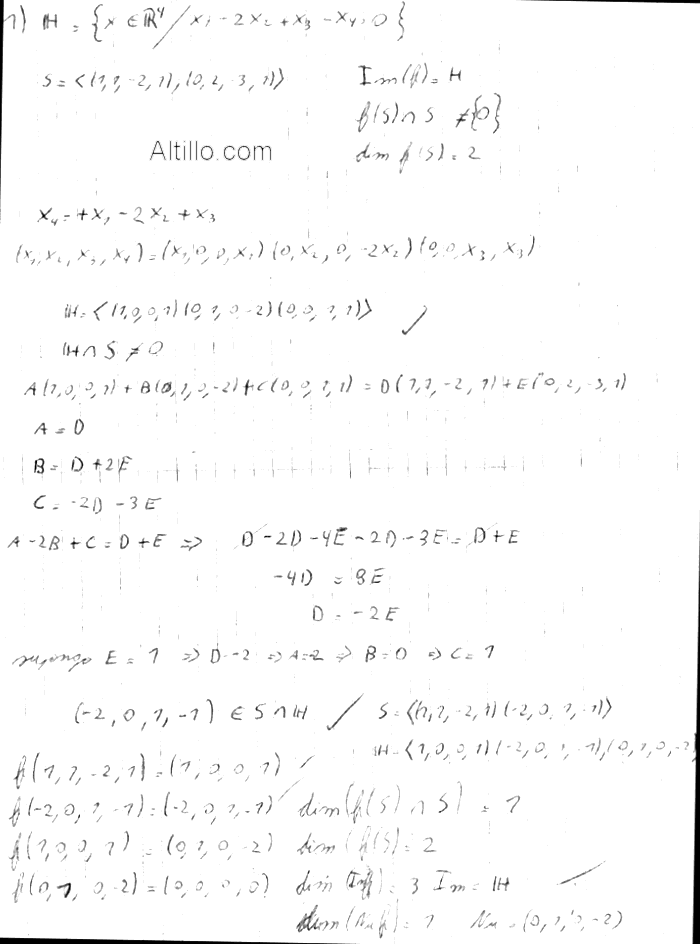 1) H = {x ∈ ℝ⁴ / x₁ - 2x₂ + x₃ - x₄ = 0}
S = <(1,1,-2,1),(0,2,-3,1)>
Im(f) = H
f(S) ∩ S ≠ {0}
dim f(S) = 2
Altillo.com
x₄ = +x₁ - 2x₂ + x₃
(x₁, x₂, x₃, x₄) = (x₁,0,0,x₁) (0,x₂,0,-2x₂) (0,0,x₃,x₃)
H = <(1,0,0,1)(0,1,0-2)(0,0,1,1)> ✓
H ∩ S ≠ 0
A(1,0,0,1) + B(0,1,0,-2) + C(0,0,1,1) = D(1,1,-2,1) + E(0,2,-3,1)
A = D
B = D + 2E
C = -2D - 3E
A - 2B + C = D + E => D - 2D - 4E - 2D - 3E = D + E
-4D = 8E
D = -2E
supongo E = 1 => D -2 => A=-2 => B=0 => C=1
(-2,0,1,-1) ∈ S ∩ H ✓ S = <(1,1,-2,1)(-2,0,1,-1)>
H = <(1,0,0,1)(-2,0,1,-1),(0,1,0,-2)
f(1,1,-2,1) = (1,0,0,1) ✓
f(-2,0,1,-1) = (-2,0,1,-1) ✓ dim(f(S) ∩ S) = 1
f(1,0,0,1) = (0,1,0,-2) dim (f(S) = 2
f(0,1,0,-2) = (0,0,0,0) dim (Imf) = 3 Im = H ✓
dim(Nuf) = 1 Nu = (0,1,0,-2)